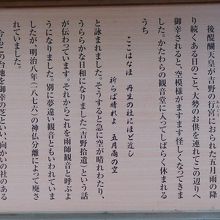 後醍醐天皇が吉野の行宮におられた五月雨降
り続くある日のこと、大勢のお供を連れてこの辺りへ
御幸されると、空模様がますます怪しくなってきま
した。かたわらの観音堂に入ってしばらく休まれる
うち
ここはなほ　丹生の社にほど近し
祈らば晴れよ　五月雨の空
と詠まれました。そうすると急に空が晴れわたり、
うららかな日和になりました(吉野拾遺)という話
が伝わっています。それからこれを雨師観音と呼ぶよ
うになりました。別に夢違い観音ともいわれていま
したが、明治八年(一八七六)の神仏分離によって廃さ
れていました。